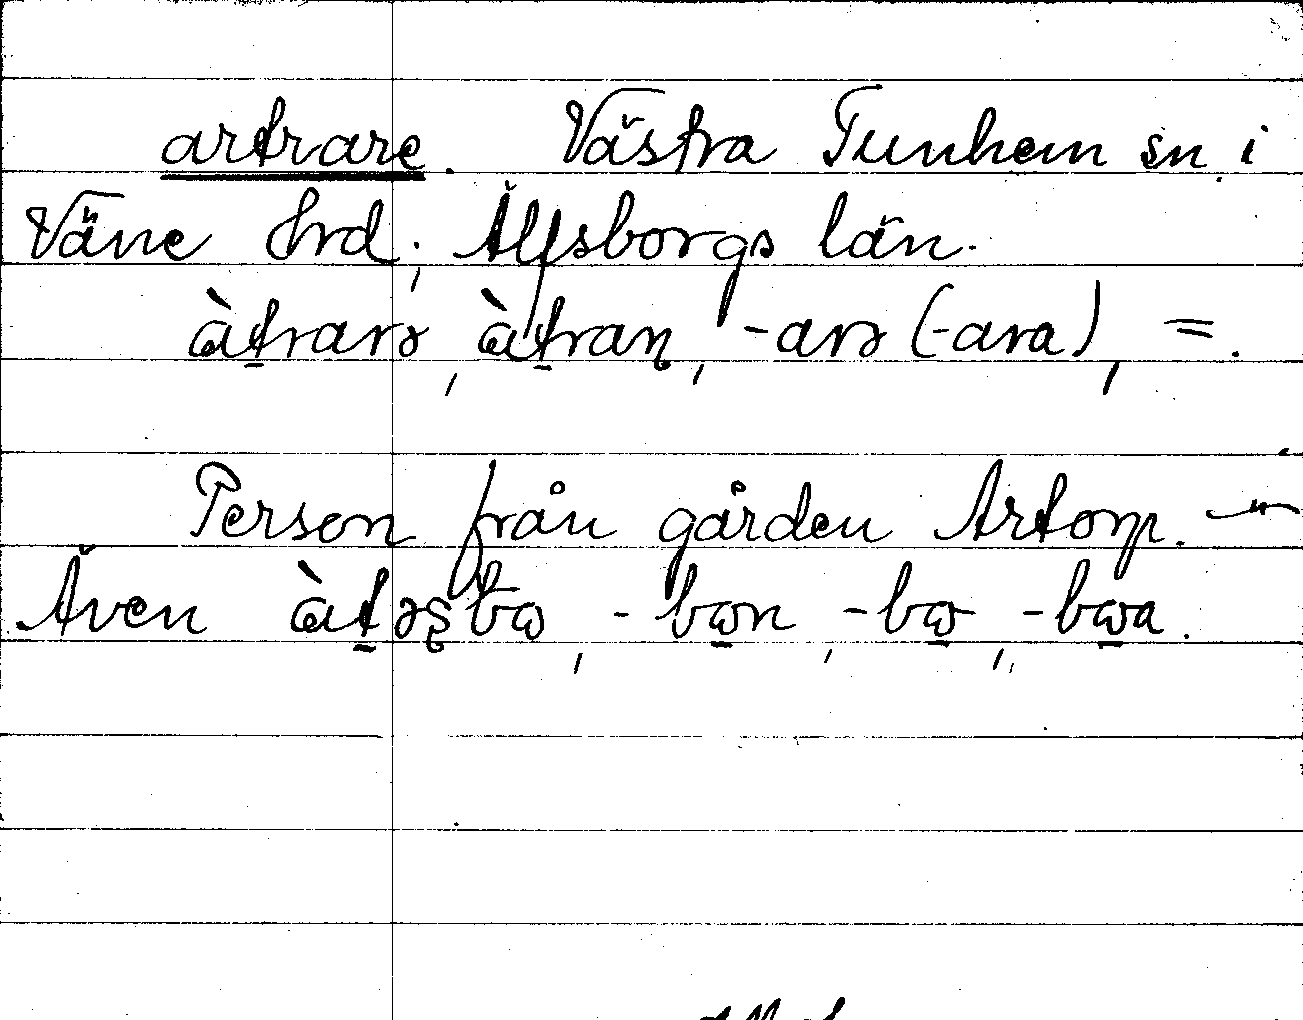 artrare. Västra Tunhem sn i
Väne hrd, Älfsborgs län.
àt̠rarə, àt̠raɳ, -arə (-ara), =.
Person från gården Artorp. —
Även àt̠əʂbɷ, -bɷ̠n, -bɷ̠, -bɷ̠a.